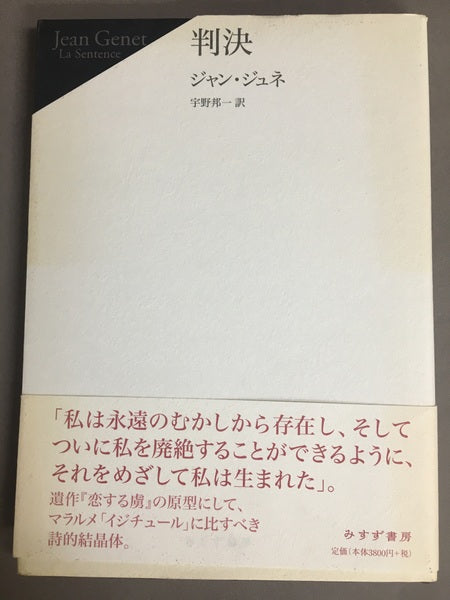 Jean Genet
La Sentence
判決
ジャン・ジュネ
宇野邦一 訳
「私は永遠のむかしから存在し、そして
ついに私を廃絶することができるように、
それをめざして私は生まれた」。
遺作『恋する虜』の原型にして、
マラルメ「イジチュール」に比すべき
詩的結晶体。
みすず書房
定価(本体3800円+税)